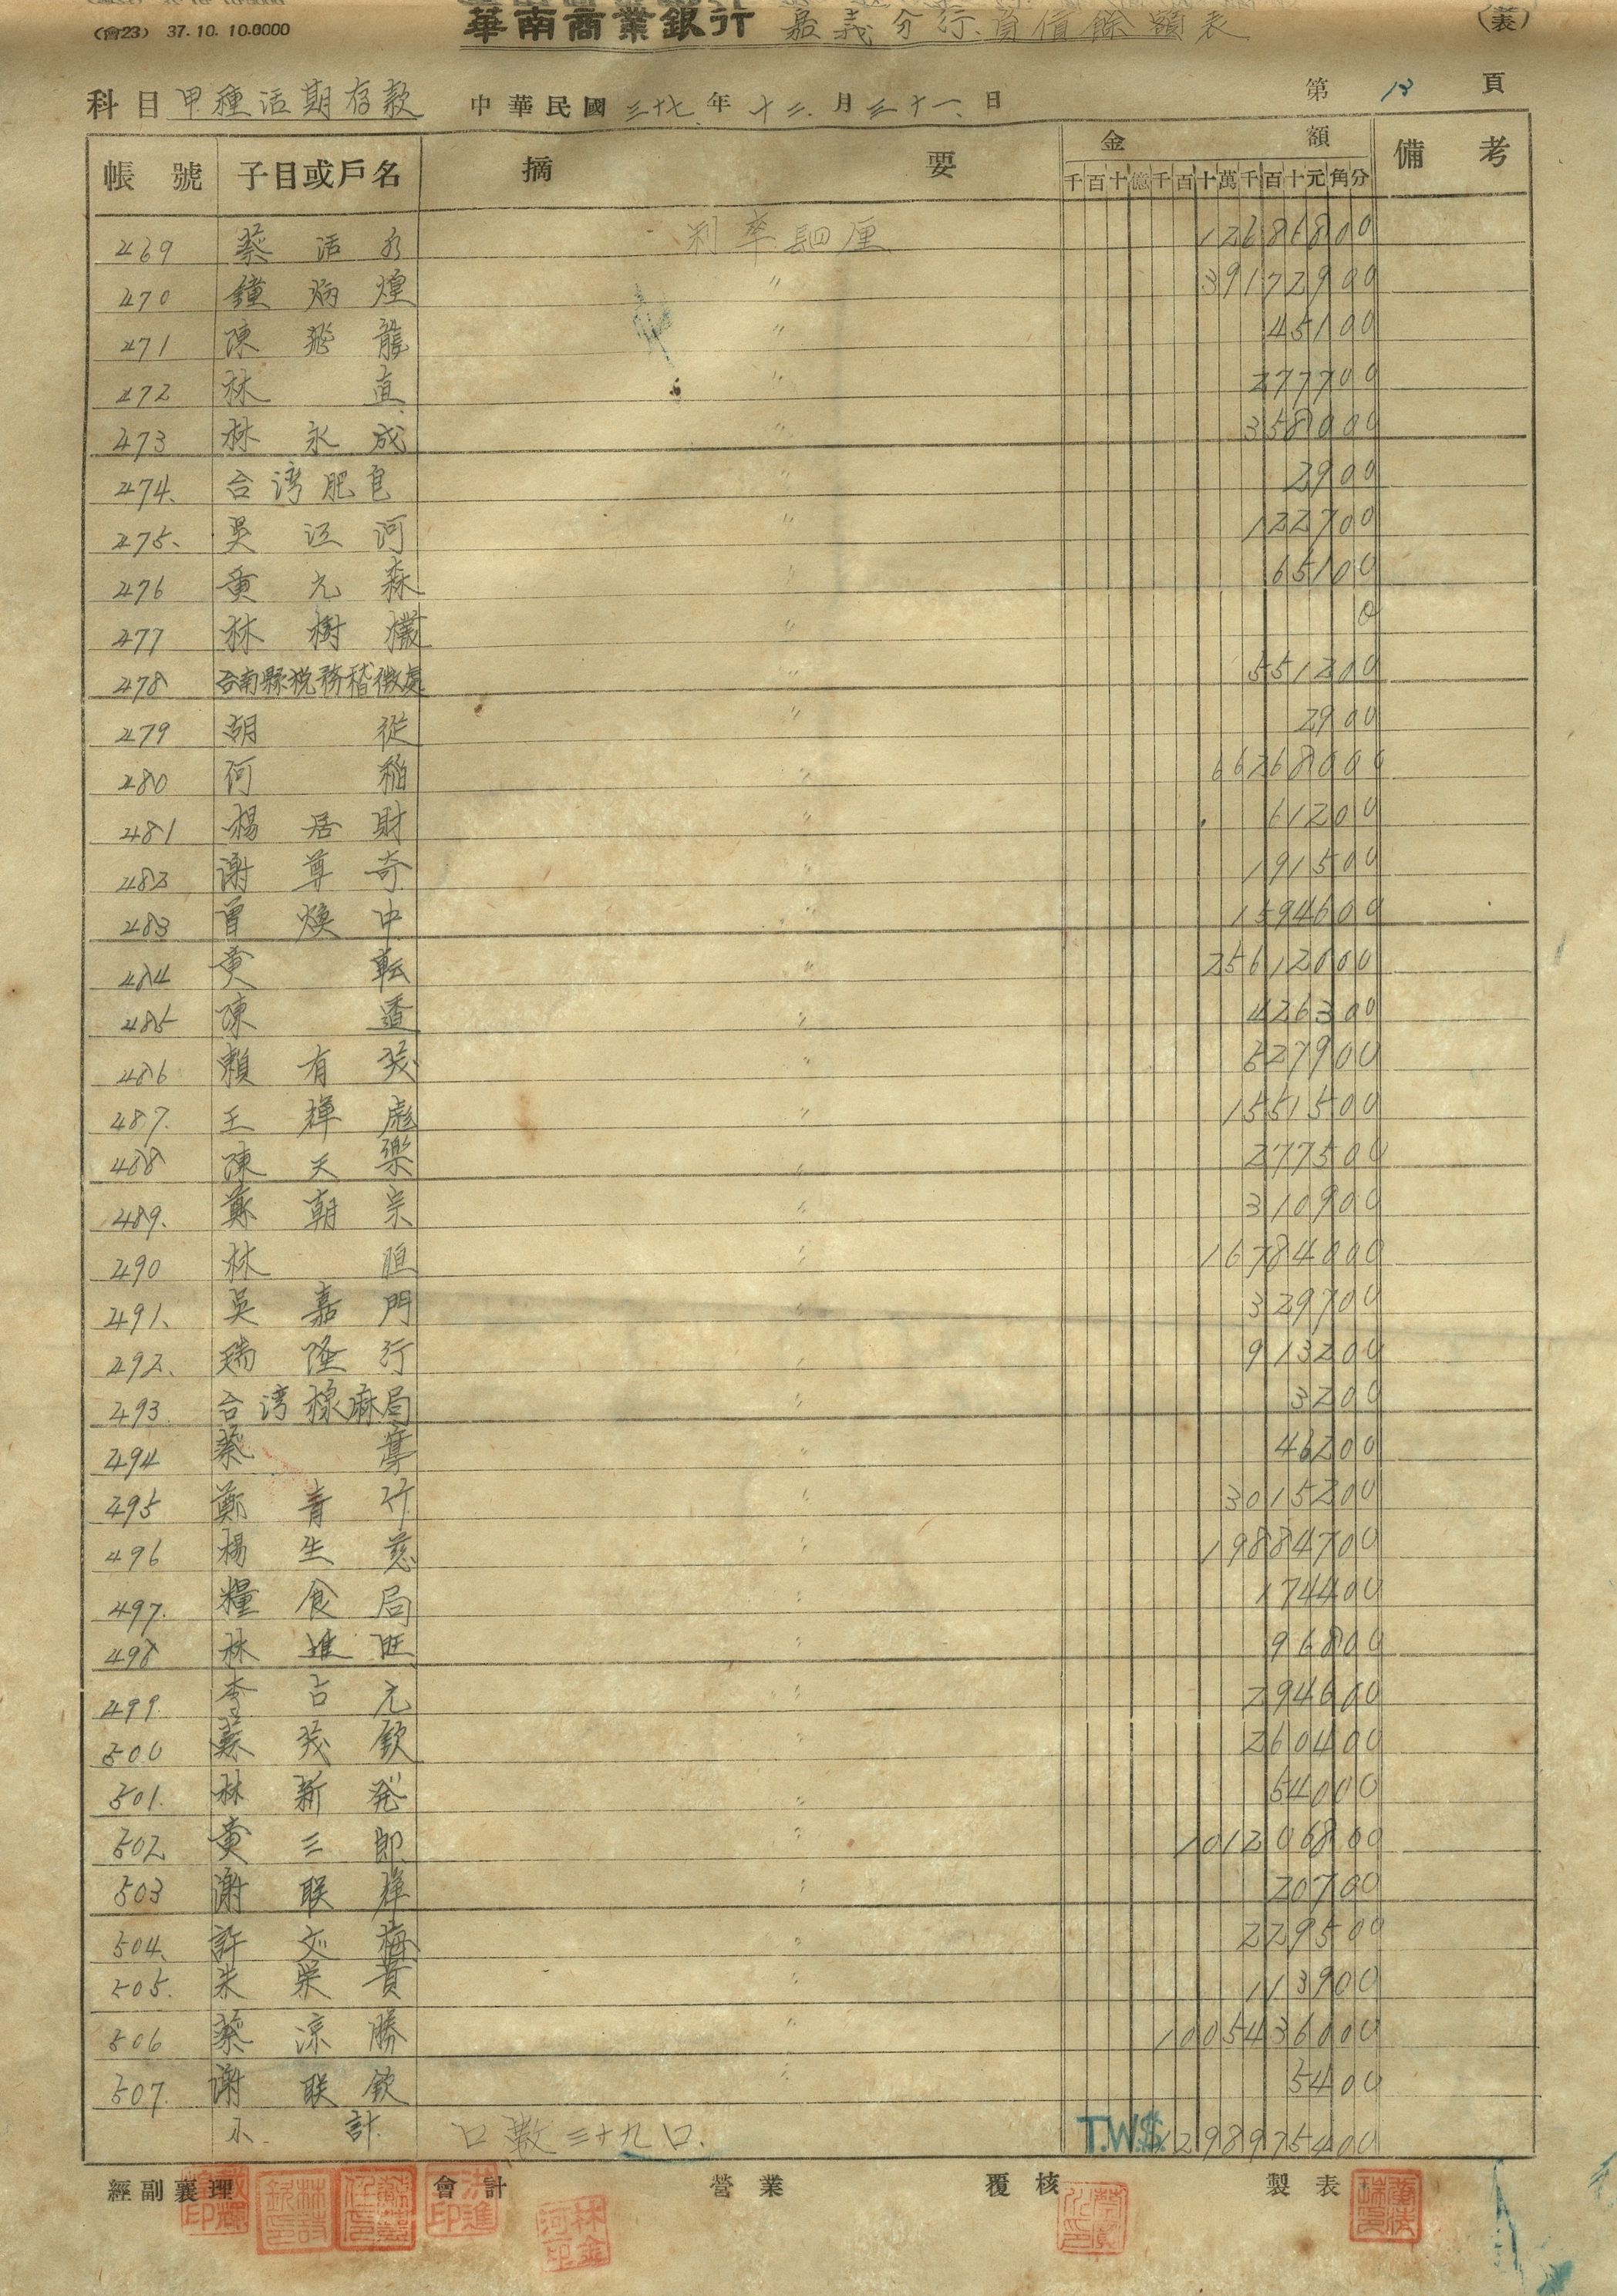 (會23) 37.10. 10.0000
華南商業銀行 嘉義分行資債餘額表 (表)
科目 甲種活期存款 中華民國 三十七 年 十二 月 三十一 日 第 13 頁
帳號 子目或戶名 摘要 金額 備考
千百十億千百十萬千百十元角分
469 蔡活水 利率駟厘 12686800
470 鐘炳煌 〃 39172900
471 陳飛龍 〃 45100
472 林直 〃 277700
473 林永成 〃 358000
474. 台湾肥皂 〃 2900
475. 吳江河 〃 122700
476 黃允森 〃 65100
477 林樹欉 〃 0
478 台南縣税務稽徵處 〃 551200
479 胡從 〃 2900
480 何稻 〃 66268000
481 楊居財 〃 61200
482 謝尊奇 〃 191500
483 曾煥中 〃 1594600
484 黃転 〃 25612000
485 陳透 〃 426300
486 賴有茂 〃 527900
487. 王樺彪 〃 1551500
488 陳天樂 〃 277500
489. 鄭朝宗 〃 310900
490 林恒 〃 16784000
491. 吳嘉門 〃 329700
492. 瑞隆行 〃 913200
493. 台湾檾麻局 〃 3200
494 蔡 〃 46200
495 鄭青竹 〃 3015200
496 楊生慈 〃 19884700
497. 糧食局 〃 174400
498 林進旺 〃 96800
499. 李占元 〃 294600
500 蘇茂欽 〃 260400
501. 林新発 〃 54000
502 黃三郎 〃 101206800
503 謝联樺 〃 20700
504. 許文梅 〃 229500
505. 朱栄貴 〃 113900
506 蔡涼勝 〃 1005436000
507. 謝联欽 〃 5400
小計 口數三十九口. T.W.$ 1298975400
經副襄理 會計 營業 覆核 製表